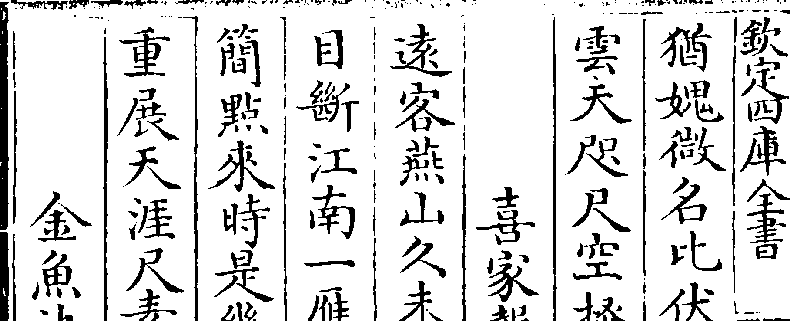 欽定四庫全書
猶媿微名比伏
雲天咫尺空
喜家報
遠客燕山久未
目斷江南一雁
簡點來時是幾
重展天涯尺素
金魚池